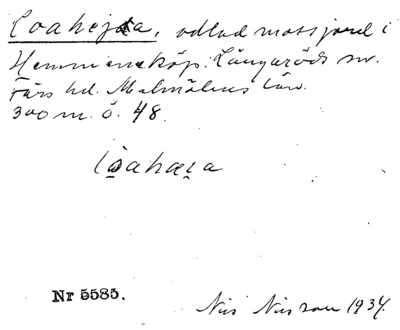 Loahejda, odlad mossjord i
Hemmeneköp. Långaröds sn.
Färs hd. Malmöhus län.
300 m. ö. 48.
loahæɪa
Nr 5585.
Nils Nilsson 1934.